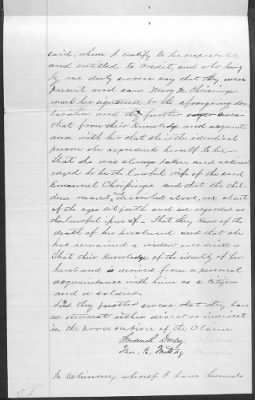 said, whom I certify to be respectable
and entitled to credit, and who being
by me duly sworn say that they were
present and saw Mary M.
mark her signature to the foregoing dec-
laration and they further swear
that from their knowledge and acquaint-
ance with her that she is the identical
person she represents herself to be
That she was always taken and acknowl-
edged to be the lawful wife of the said
Emanuel and that the chil-
dren named, described above, are about
of the ages set forth and as reported as
the lawful issue. That they know of the
death of her husband and that she
has remained a widow ever since.
That their knowledge of the identity of her
husband is derived from a personal
acquaintance with him as a citizen
and a soldier.
And they further swear that they have
no interest either direct or indirect
in the prosecution of the Claim

In testimony whereof I have hereunto